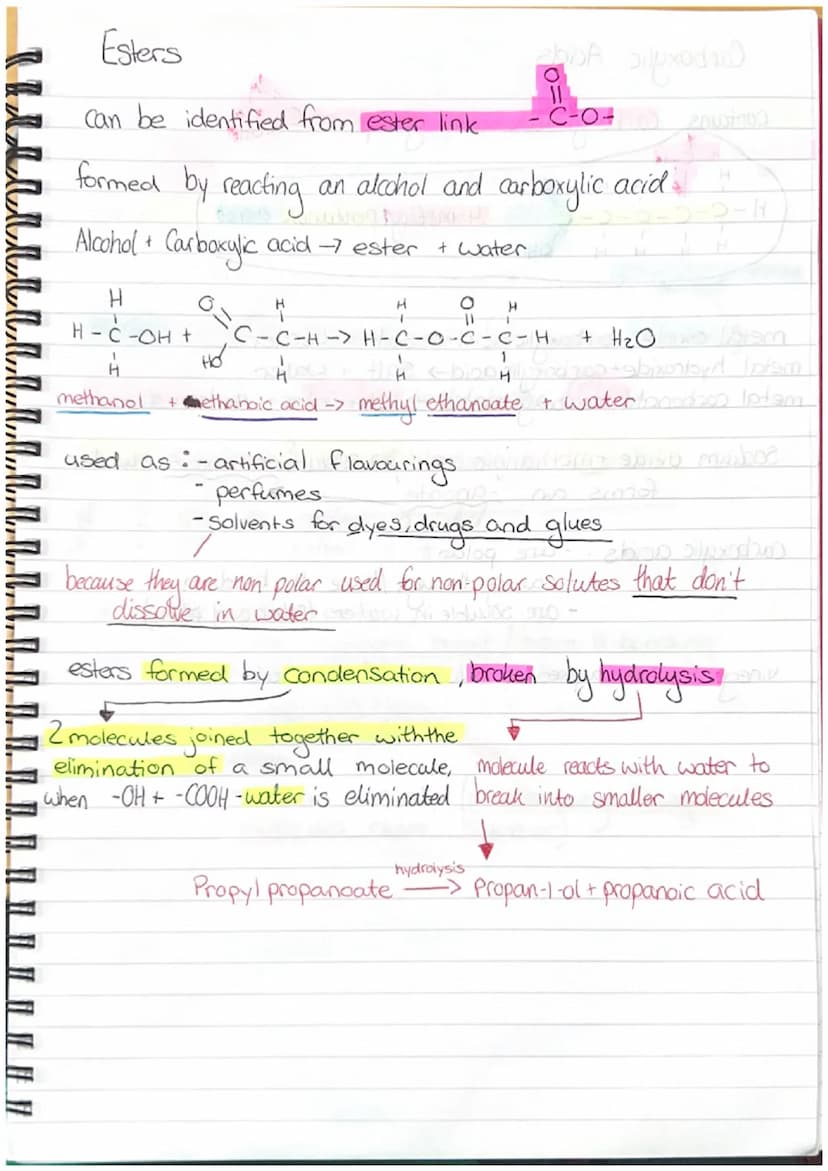 Esters
can be identified from ester link
O
||
- C-O-
formed by reacting an alcohol and carboxylic acid.
Alcohol + Carboxylic acid → ester + water
H O H H O H
H - C -OH + C - C -H → H - C - O - C - C - H + H2O
H HO H H H
methanol + ethanoic acid → methyl ethanoate + water
used as : - artificial flavourings
- perfumes
- solvents for dyes, drugs and glues
because they are non polar used for non-polar solutes that don't
dissolve in water
esters formed by condensation, broken by hydrolysis
2 molecules joined together with the
elimination of a small molecule,
when -OH + -COOH - water is eliminated
molecule reacts with water to
break into smaller molecules
hydrolysis
Propyl propanoate → Propan-1-ol + propanoic acid